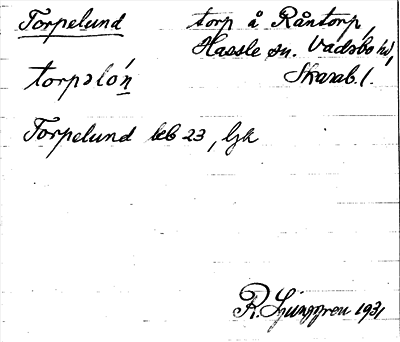 Torpelund torp å Råntorp,
Hassle sn. Vadsbo hd,
torpəlón Skarab. l.
Torpelund beb 23, Gjk
R. Ljunggren 1931